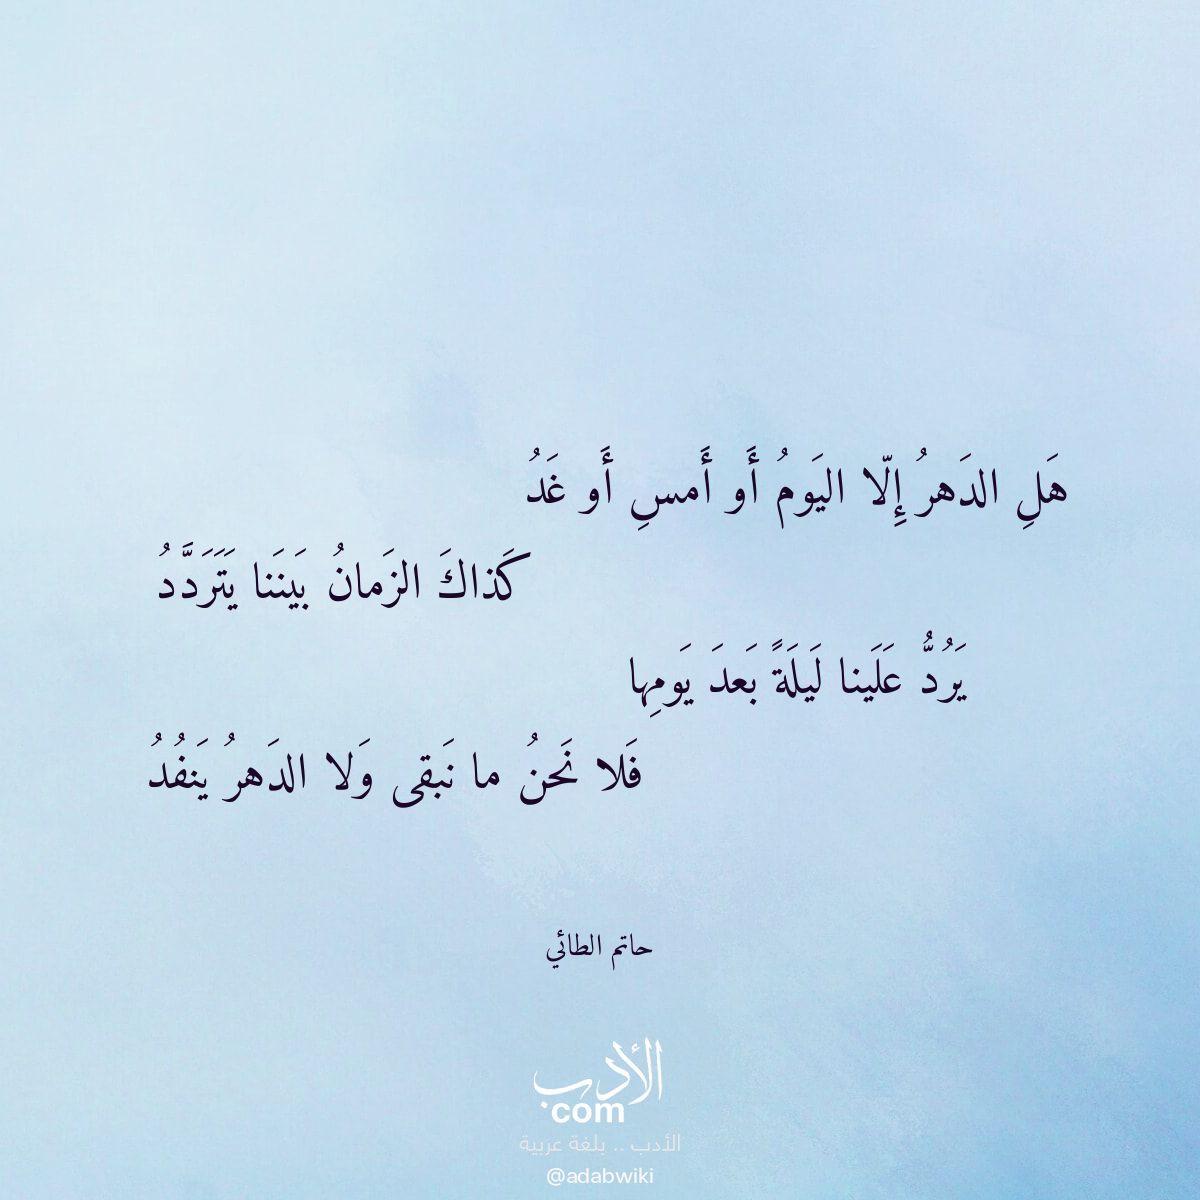 هَلِ الدَهرُ إِلّا اليَومُ أَو أَمسِ أَو غَدُ
كَذاكَ الزَمانُ بَينَنا يَتَرَدَّدُ
يَرُدُّ عَلَينا لَيلَةً بَعدَ يَومِها
فَلا نَحنُ ما نَبقى وَلا الدَهرُ يَنفُدُ
حاتم الطائي
الأدب
com
الأدب .. بلغة عربية
@adabwiki